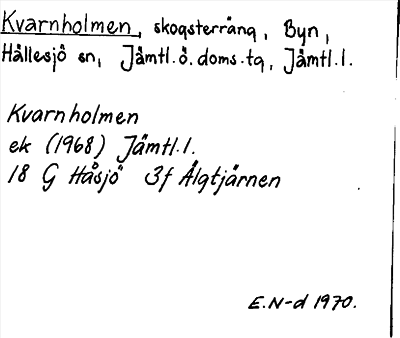 Kvarnholmen, skogsterräng, Byn,
Hällesjö sn, Jämtl.ö.doms.tg, Jämtl.l.
Kvarnholmen
ek (1968) Jämtl.l.
18 G Håsjö 3f Älgtjärnen
E.N-d 1970.